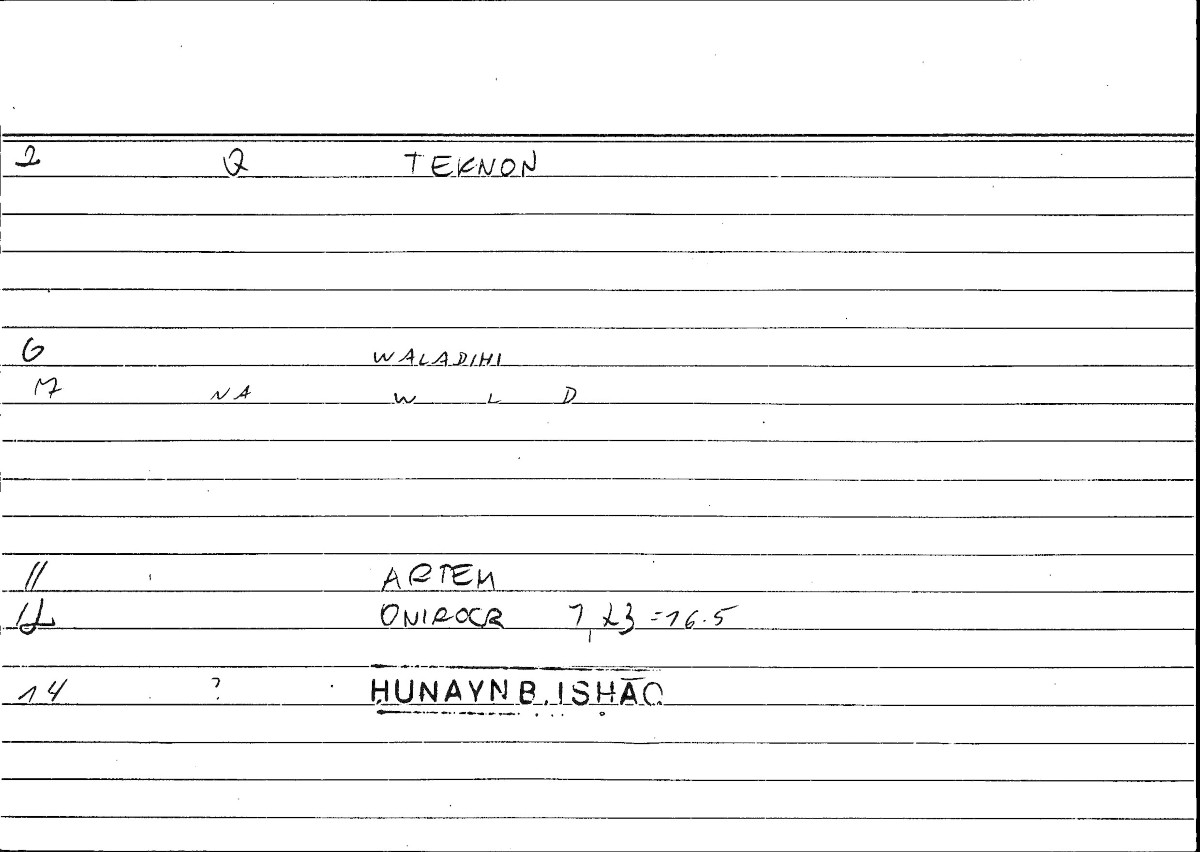 2 Q TEKNON
6 WALADIHI
M NA W L D
11 ARTEM
12 ONIROCR 1, 23 = 16.5
14 ? ḤUNAYN B. ISḤĀQ